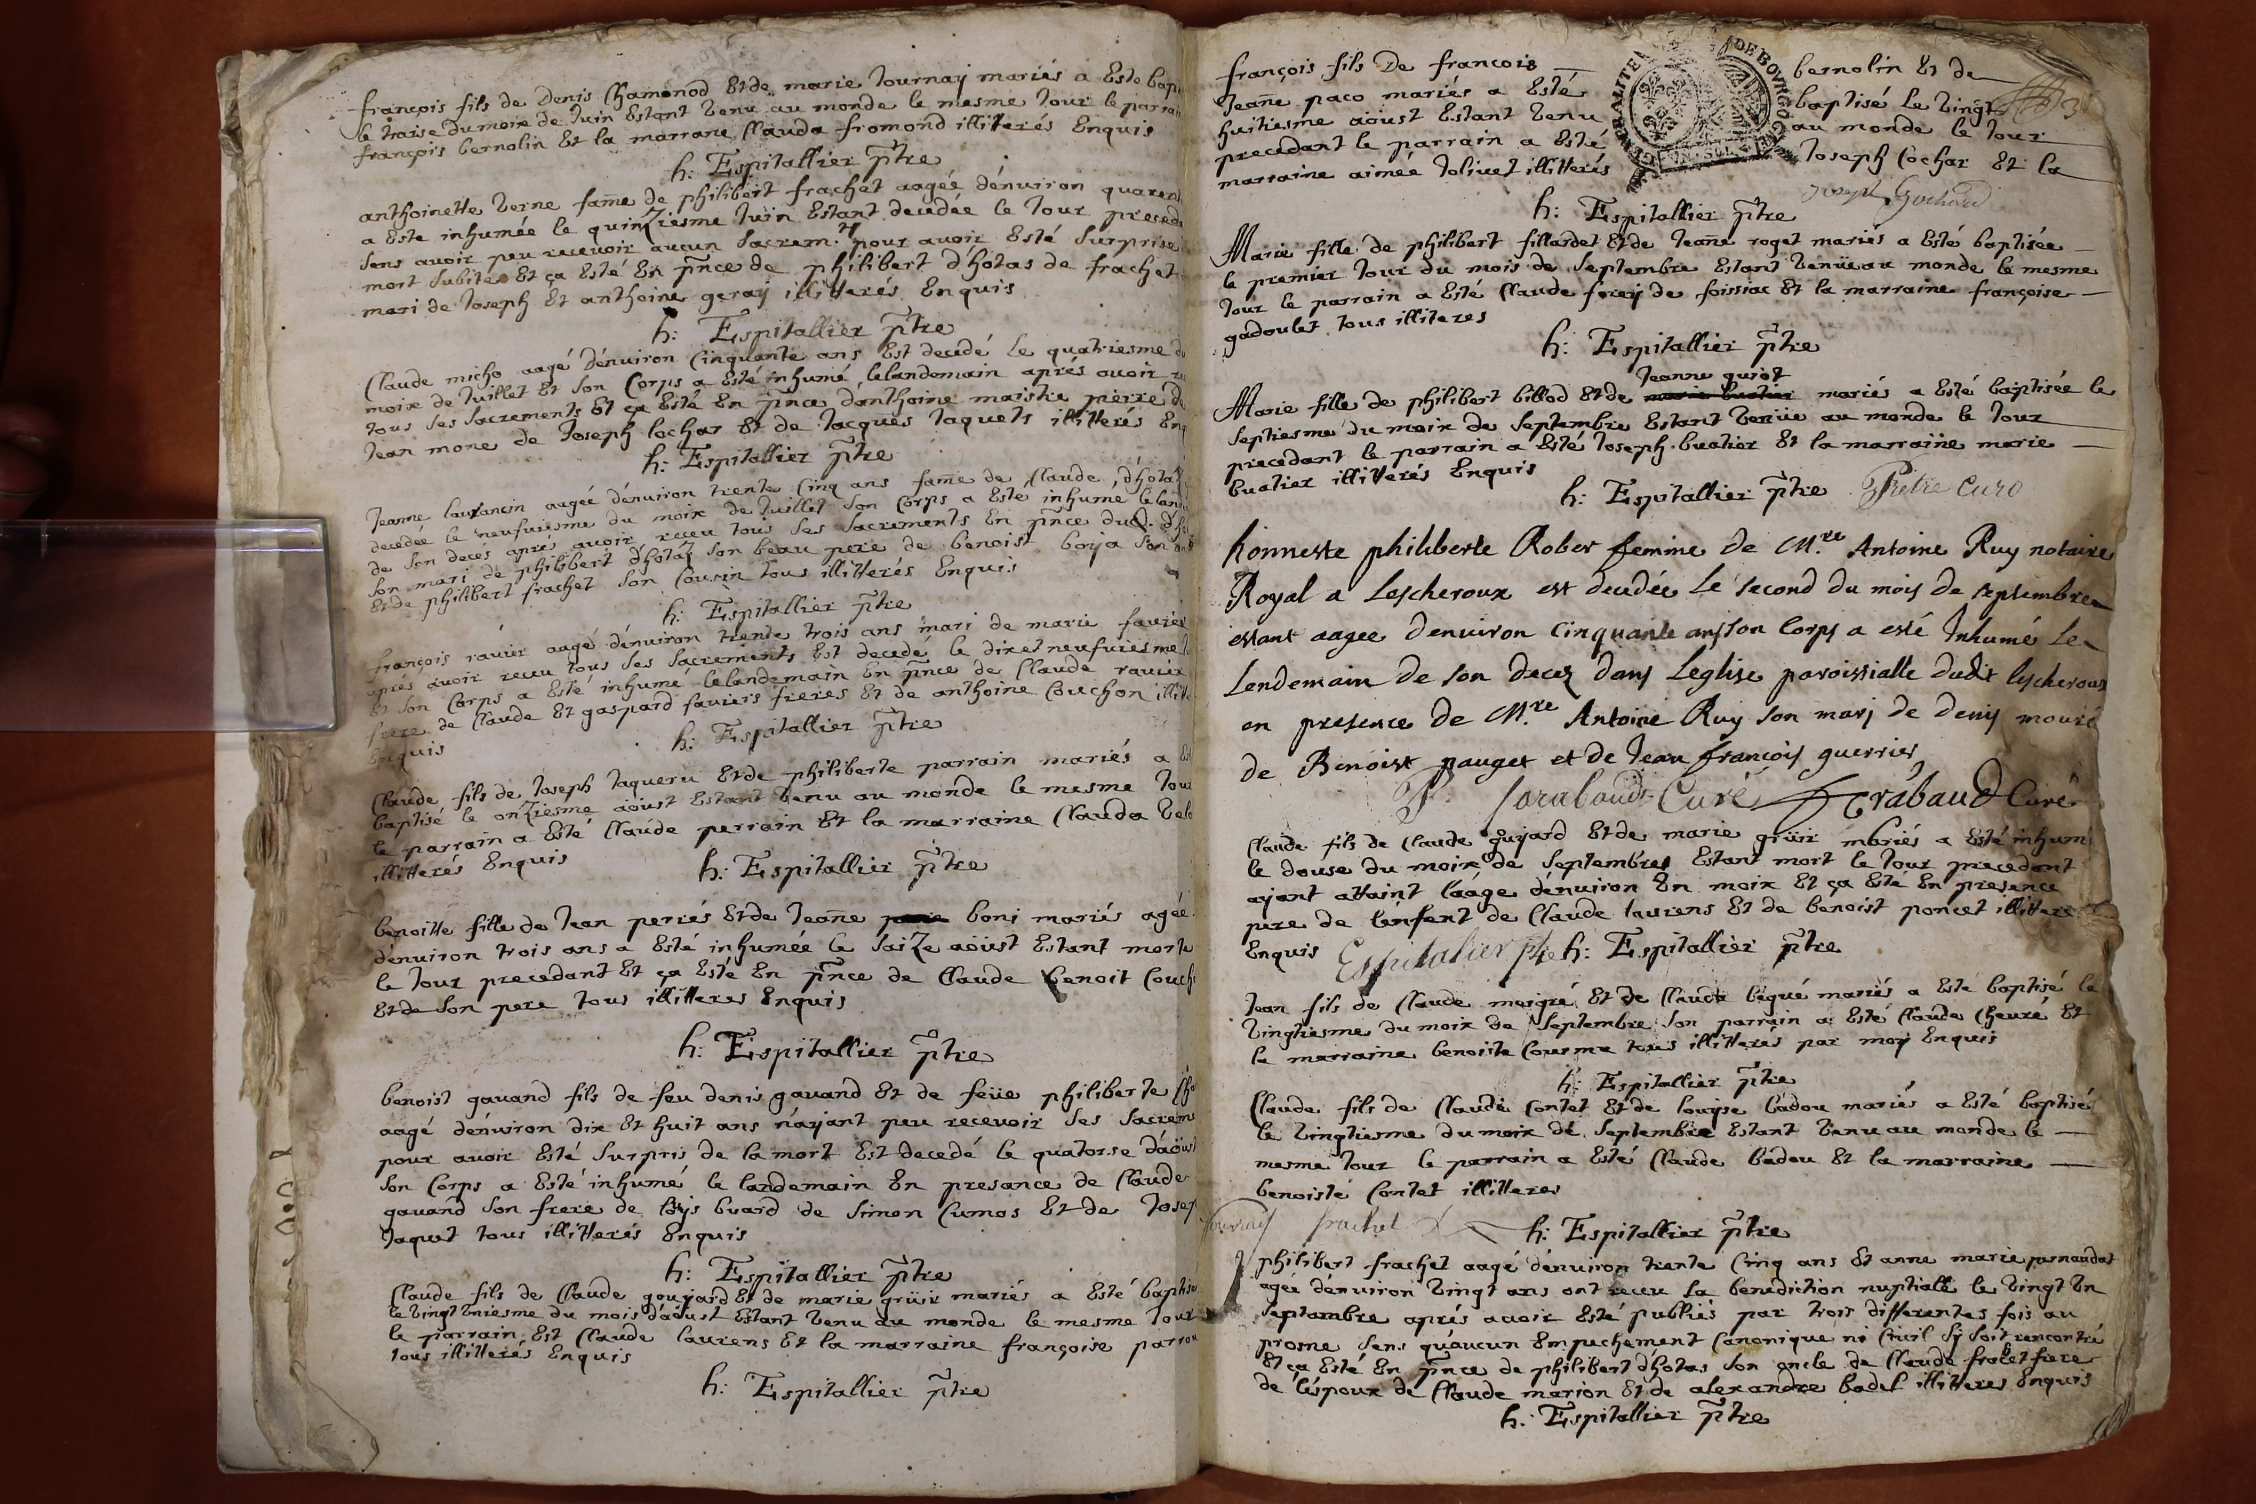 françois fils de Denis Chamonod Et de marie Tournaÿ mariés a Esté bap
le traise du moix de Juin Estant Venu au monde le mesme Jour le parrain
françois bernolin Et la marrane Clauda fromond illiterés Enquis
h: Espitallier p̃tre
anthoinette Verne fam̃e de philibert frachet aagéé dénuiron quarent
a Esté inhuméé le quinziesme Juin Estant decedée le Jour preceda
sens avoir peu recevoir aucun Sacrem.t pour avoir Esté Surprise
mort Subite Et ça Esté En p̃nce de philibert d'hotas de frachet
mari de Joseph Et anthoine geraÿ illitterés Enquis
h: Espitallier p̃tre
Claude micho aagé dénuiron Cinquante ans Est decedé Le quatriesme du
moix de Juillet Et Son Corps a Esté inhumé lelandemain aprés avoir re
tous Ses Sacrements Et ça Esté En p̃nce dánthoine maistre pierre de
Jean mone de Joseph Cochar Et de Jacques Jaquets illitterés Enq
h: Espitallier p̃tre
Jeanne laurancin aagéé dénuiron trente Cinq ans fam̃e de Claude d'hotas
decedée le neufuiesme du moix de Juillet Son Corps a Esté inhumé leland
de Son decés aprés avoir receu tous Ses Sacrements En p̃nce dud. d'ho
Son mari de philibert d'hotaz Son beau pere de benoist borja Son
Et de philibert frachet Son Cousin tous illitterés Enquis
h: Espitallier p̃tre
françois ravier aagé dénuiron trente trois ans mari de marie favier
aprés avoir receu tous Ses Sacrements Est decedé le dix et neufuiesme
Et Son Corps a Esté inhumé lelandemain En p̃nce de Claude ravier
frere de Claude Et gaspard faviers freres Et de anthoine Couchon illitt
Enquis
h: Espitallier p̃tre
Claude fils de Joseph Jaqueru Et de philiberte parrain mariés a Es
baptisé le onziesme aoust Estant Venu au monde le mesme Jour
le parrain a Esté Claude perrain Et la marraine Clauda Vel
illitterés Enquis
h: Espitallier p̃tre
benoitte fille de Jean periés Et de Jean̄e boni mariés agéé
dénuiron trois ans a Esté inhumée le Saize aoust Estant morte
le Jour precedant Et ça Esté En p̃nce de Claude benoit Couch
Et de Son pere tous illitteres Enquis
h: Espitallier p̃tre
benoist gauand fils de feu denis gauand Et de feüe philiberte Cho
aagé dénuiron dix Et huit ans náÿant peu recevoir Ses Sacrem
pour avoir Esté Surpris de la mort Est decedé le quatorse dáoust
Son Corps a Esté inhumé le landemain En presance de Claude
gauand Son frere de loÿs buard de Simon Cumos Et de Josep
Jaquet tous illitterés Enquis
h: Espitallier p̃tre
Claude fils de Claude gouÿard Et de marie grüir mariés a Esté baptisé
le Vingt Vniesme du mois dáoust Estant Venu au monde le mesme Jour
le parrain Est Claude laurens Et la marraine françoise parrou
tous illitterés Enquis
h: Espitallier p̃tre
GENERALITE DE BOVRGOGNE
françois fils De francois bernolin Et de
Jean̄e paco mariés a Esté baptisé Le Vingt 3
huitiesme aoust Estant Venu au monde le Jour
precedant le parrain a Esté Joseph Cochar Et la
marraine aimée Jolivet illitterés
Joseph Cochard
h: Espitallier p̃tre
Marie fille de philibert fillardet Et de Jean̄e roget mariés a Esté baptisée
le premier Jour du mois de Septembre Estant Venüe au monde le mesme
Jour le parrain a Esté Claude fereÿ de foissiac Et la marraine françoise
gadoulet tous illiteres
h: Espitallier p̃tre
Jeanne guiot
Marie fille de philibert billod Et de marie buatier mariés a Esté baptisée le
Septiesme du moix de Septembre Estant Venüe au monde le Jour
precedant le parrain a Esté Joseph buatier Et la marraine marie
buatier illitterés Enquis
h: Espitallier p̃tre Prêtre Curé
honneste philiberte Rober femme de M.re Antoine Ruy notaire
Royal a Lescheroux est decedée Le second du mois de septembre
estant aagee denuiron Cinquante ans Son Corps a esté Inhumé Le
Lendemain de son decez dans Leglise paroissialle dudt lescheroux
en presence de M.re Antoine Ruy son mary de denis mouré
de Benoist pauget et de Jean françois guerrier
Sorabaud Curé Sorabaud Curé
Claude fils de Claude guÿard Et de marie grüir mariés a Esté inhumé
le douse du moix de Septembre Estant mort le Jour precedant
aÿant attaint láage dénuiron Vn moix Et ça Esté En presence
pere de lénfent de Claude lauriens Et de benoist poncet illittere
Enquis Espitalier ptre h: Espitallier p̃tre
Jean fils de Claude meigré Et de Clauda béqué mariés a Esté baptisé le
Vingtiesme du moix de Septembre Son parrain a Esté Claude Cheuré Et
la marraine benoiste Cousme tous illitterés par moÿ Enquis
h: Espitallier p̃tre
Claude fils de Claude Contet Et de louÿse badou mariés a Esté baptisé
le Vingtiesme du moix de Septembre Estant Venu au monde le
mesme Jour le parrain a Esté Claude badou Et la marraine
benoiste Contet illitteres
frachet h: Espitallier p̃tre
philibert frachet aagé dénuiron trente Cinq ans Et anne marie pernaudat
agéé dénuiron Vingt ans ont receu la benediction nuptialle le Vingt Vn
Septambre aprés avoir Esté publiés par trois differentes fois au
prosne Sens quáucun Empechement Canonique ni Civil Sÿ Soit rencontré
Et ça Esté En p̃nce de philibert d'hotas Son oncle de Claude frachet frere
de léspoux de Claude marion Et de alexandre badel illitteres Enquis
h: Espitallier p̃tre